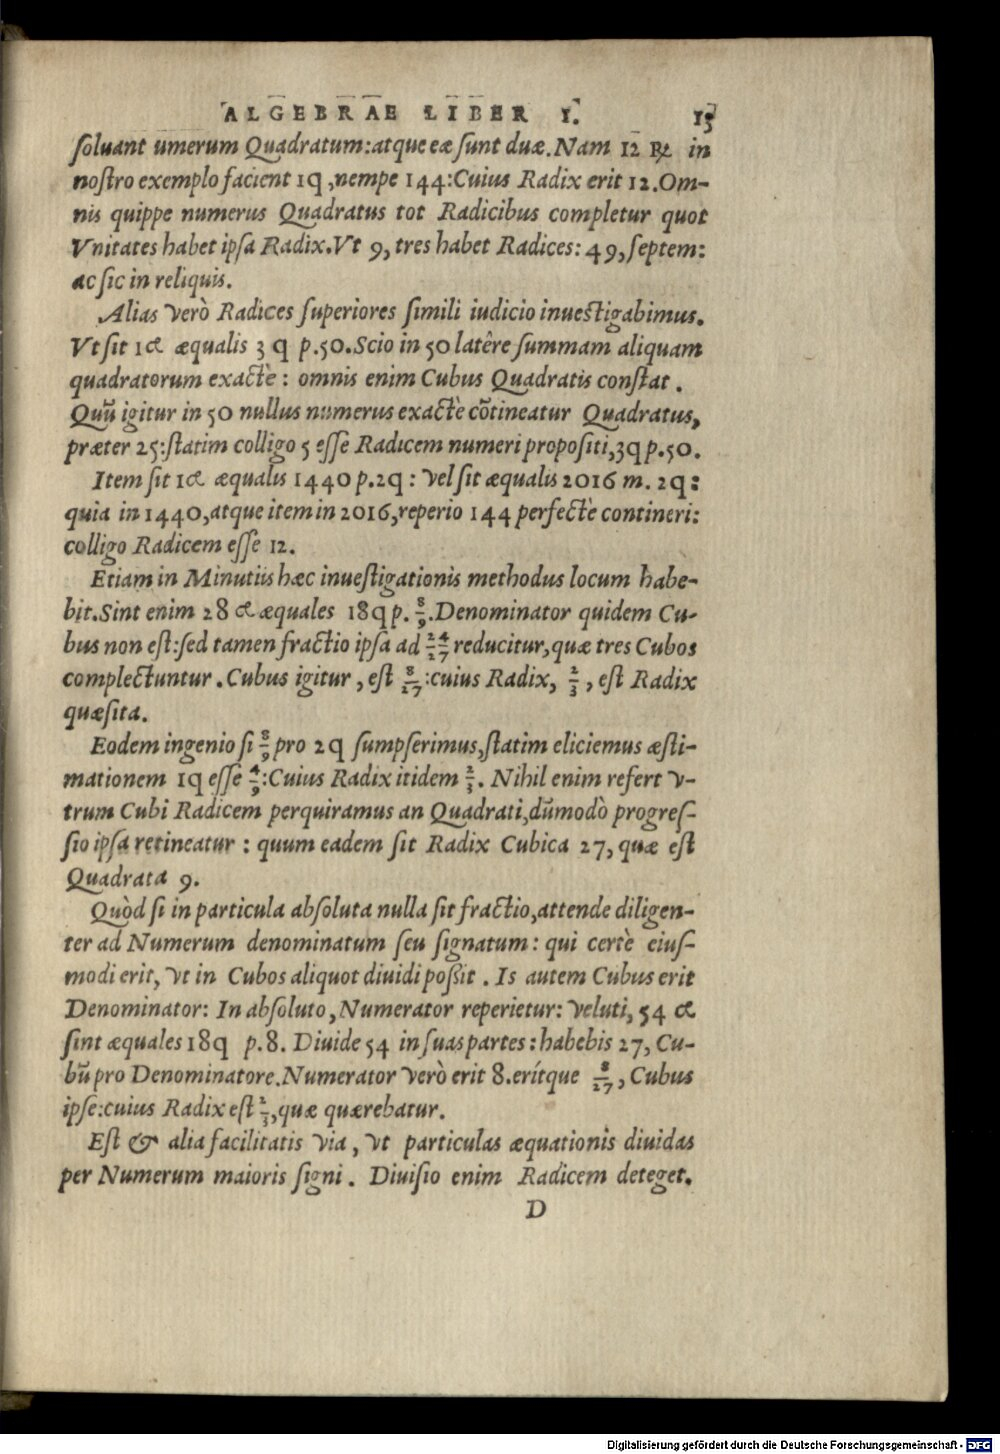 ALGEBRAE LIBER I. 13
ſoluant umerum Quadratum:atque eæ ſunt duæ.Nam 12 ℞ in
noſtro exemplo facient 1q,nempe 144:Cuius Radix erit 12.Om-
nis quippe numerus Quadratus tot Radicibus completur quot
Vnitates habet ipſa Radix.Vt 9, tres habet Radices: 49,ſeptem:
ac ſic in reliquis.
Alias verò Radices ſuperiores ſimili iudicio inueſtigabimus.
Vt ſit 1 & æqualis 3 q p.50.Scio in 50 latêre ſummam aliquam
quadratorum exactè: omnis enim Cubus Quadratis conſtat.
Quũ igitur in 50 nullus numerus exactè cõtineatur Quadratus,
præter 25:ſtatim colligo 5 eſſe Radicem numeri propoſiti,3q p.50.
Item ſit 1 & æqualis 1440 p.2q: vel ſit æqualis 2016 m. 2q:
quia in 1440,atque item in 2016,reperio 144 perfectè contineri:
colligo Radicem eſſe 12.
Etiam in Minutiis hæc inueſtigationis methodus locum habe-
bit.Sint enim 28 & æquales 18q p. 8/9.Denominator quidem Cu-
bus non eſt:ſed tamen fractio ipſa ad 24/27 reducitur,quæ tres Cubos
complectuntur.Cubus igitur, eſt 8/27:cuius Radix, 2/3, eſt Radix
quæſita.
Eodem ingenio ſi 8/9 pro 2q ſumpſerimus,ſtatim eliciemus æſti-
mationem 1q eſſe 4/9:Cuius Radix itidem 2/3. Nihil enim refert v-
trum Cubi Radicem perquiramus an Quadrati,dũmodò progreſ-
ſio ipſa retineatur: quum eadem ſit Radix Cubica 27, quæ eſt
Quadrata 9.
Quòd ſi in particula abſoluta nulla ſit fractio,attende diligen-
ter ad Numerum denominatum ſeu ſignatum: qui certè eiuſ-
modi erit, vt in Cubos aliquot diuidi poßit. Is autem Cubus erit
Denominator: In abſoluto, Numerator reperietur: veluti, 54 &
ſint æquales 18q p.8. Diuide 54 in ſuas partes: habebis 27, Cu-
bũ pro Denominatore.Numerator verò erit 8.erítque 8/27, Cubus
ipſe:cuius Radix eſt 2/3,quæ quærebatur.
Eſt & alia facilitatis via, vt particulas æquationis diuidas
per Numerum maioris ſigni. Diuiſio enim Radicem deteget.
D
Digitalisierung gefördert durch die Deutsche Forschungsgemeinschaft - DFG